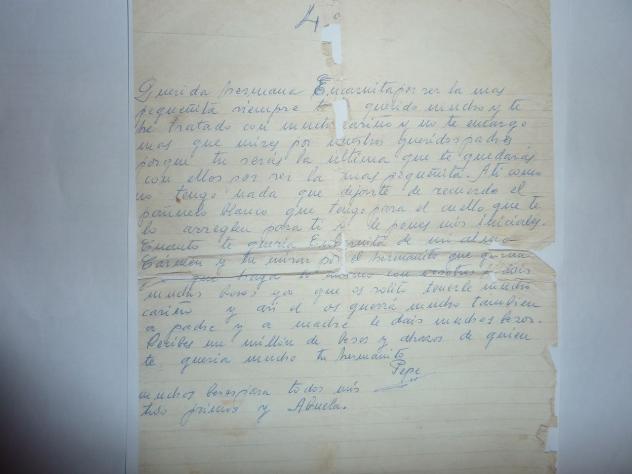 4º
Querida hermana Encarnita por ser la mas
pequeñita siempre te querido mucho y te
he tratado con mucho cariño y no te encargo
mas que mires por nuestros queridos padres
porque tu serás la ultima que te quedarás
con ellos por ser la mas pequeñita. A ti como
no tengo nada que dejarte de recuerdo el
pañuelo blanco que tengo para el cuello que te
lo arreglen para ti y le pones mis iniciales.
Cuanto te queria Encarnita de un abrazo
Carmen y tu mirar por el hermanito que
que haga lo mismo con vosotras
muchos besos ya que os solito tenerle mucho
cariño y asi el os querrá mucho tambien
a padre y a madre le dais muchos besos.
Recibes un millón de besos y abrazos de quien
te queria mucho tu hermanito
Pepe
muchos besos para todos mis
tios primos y Abuela.